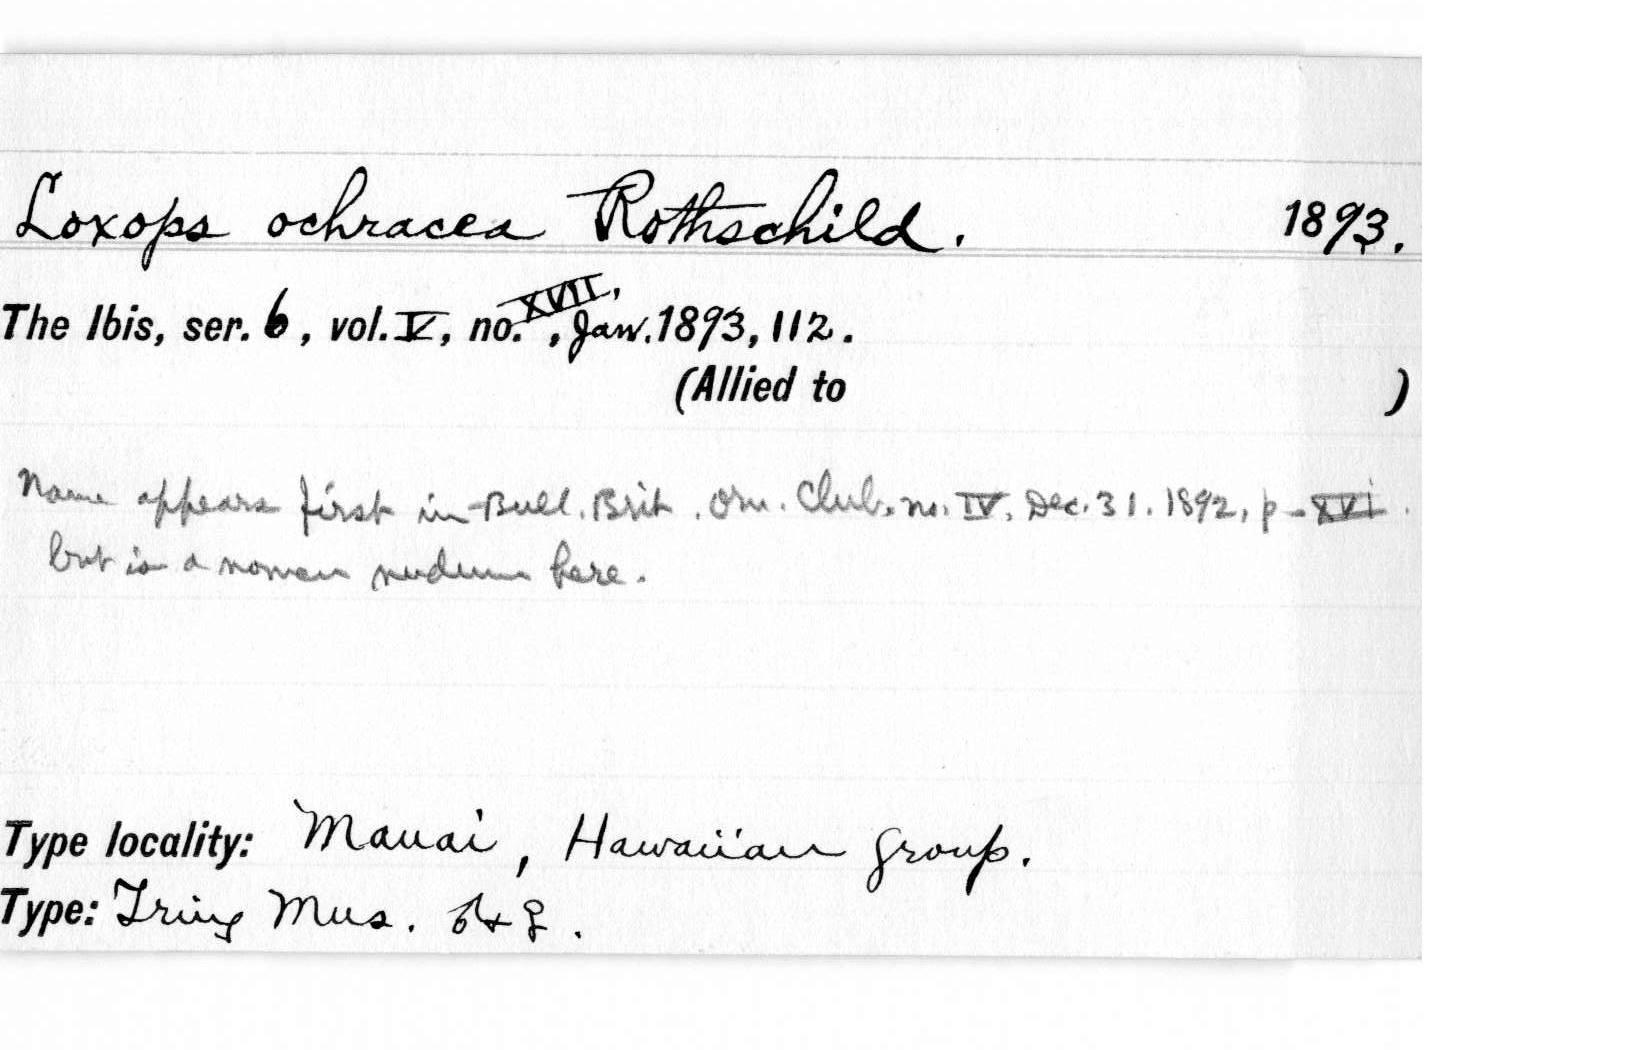 Loxops ochracea Rothschild. 1893.
The Ibis, ser. 6, vol. V, no. XVII, , Jan. 1893, 112.
(Allied to )
Name appears first in Bull. Brit. Orn. Club. no. IV, Dec. 31. 1892, p - XVI.
but is a nomen nudum here.
Type locality: Mauai, Hawaiian group.
Type: Tring Mus. ♂+♀.